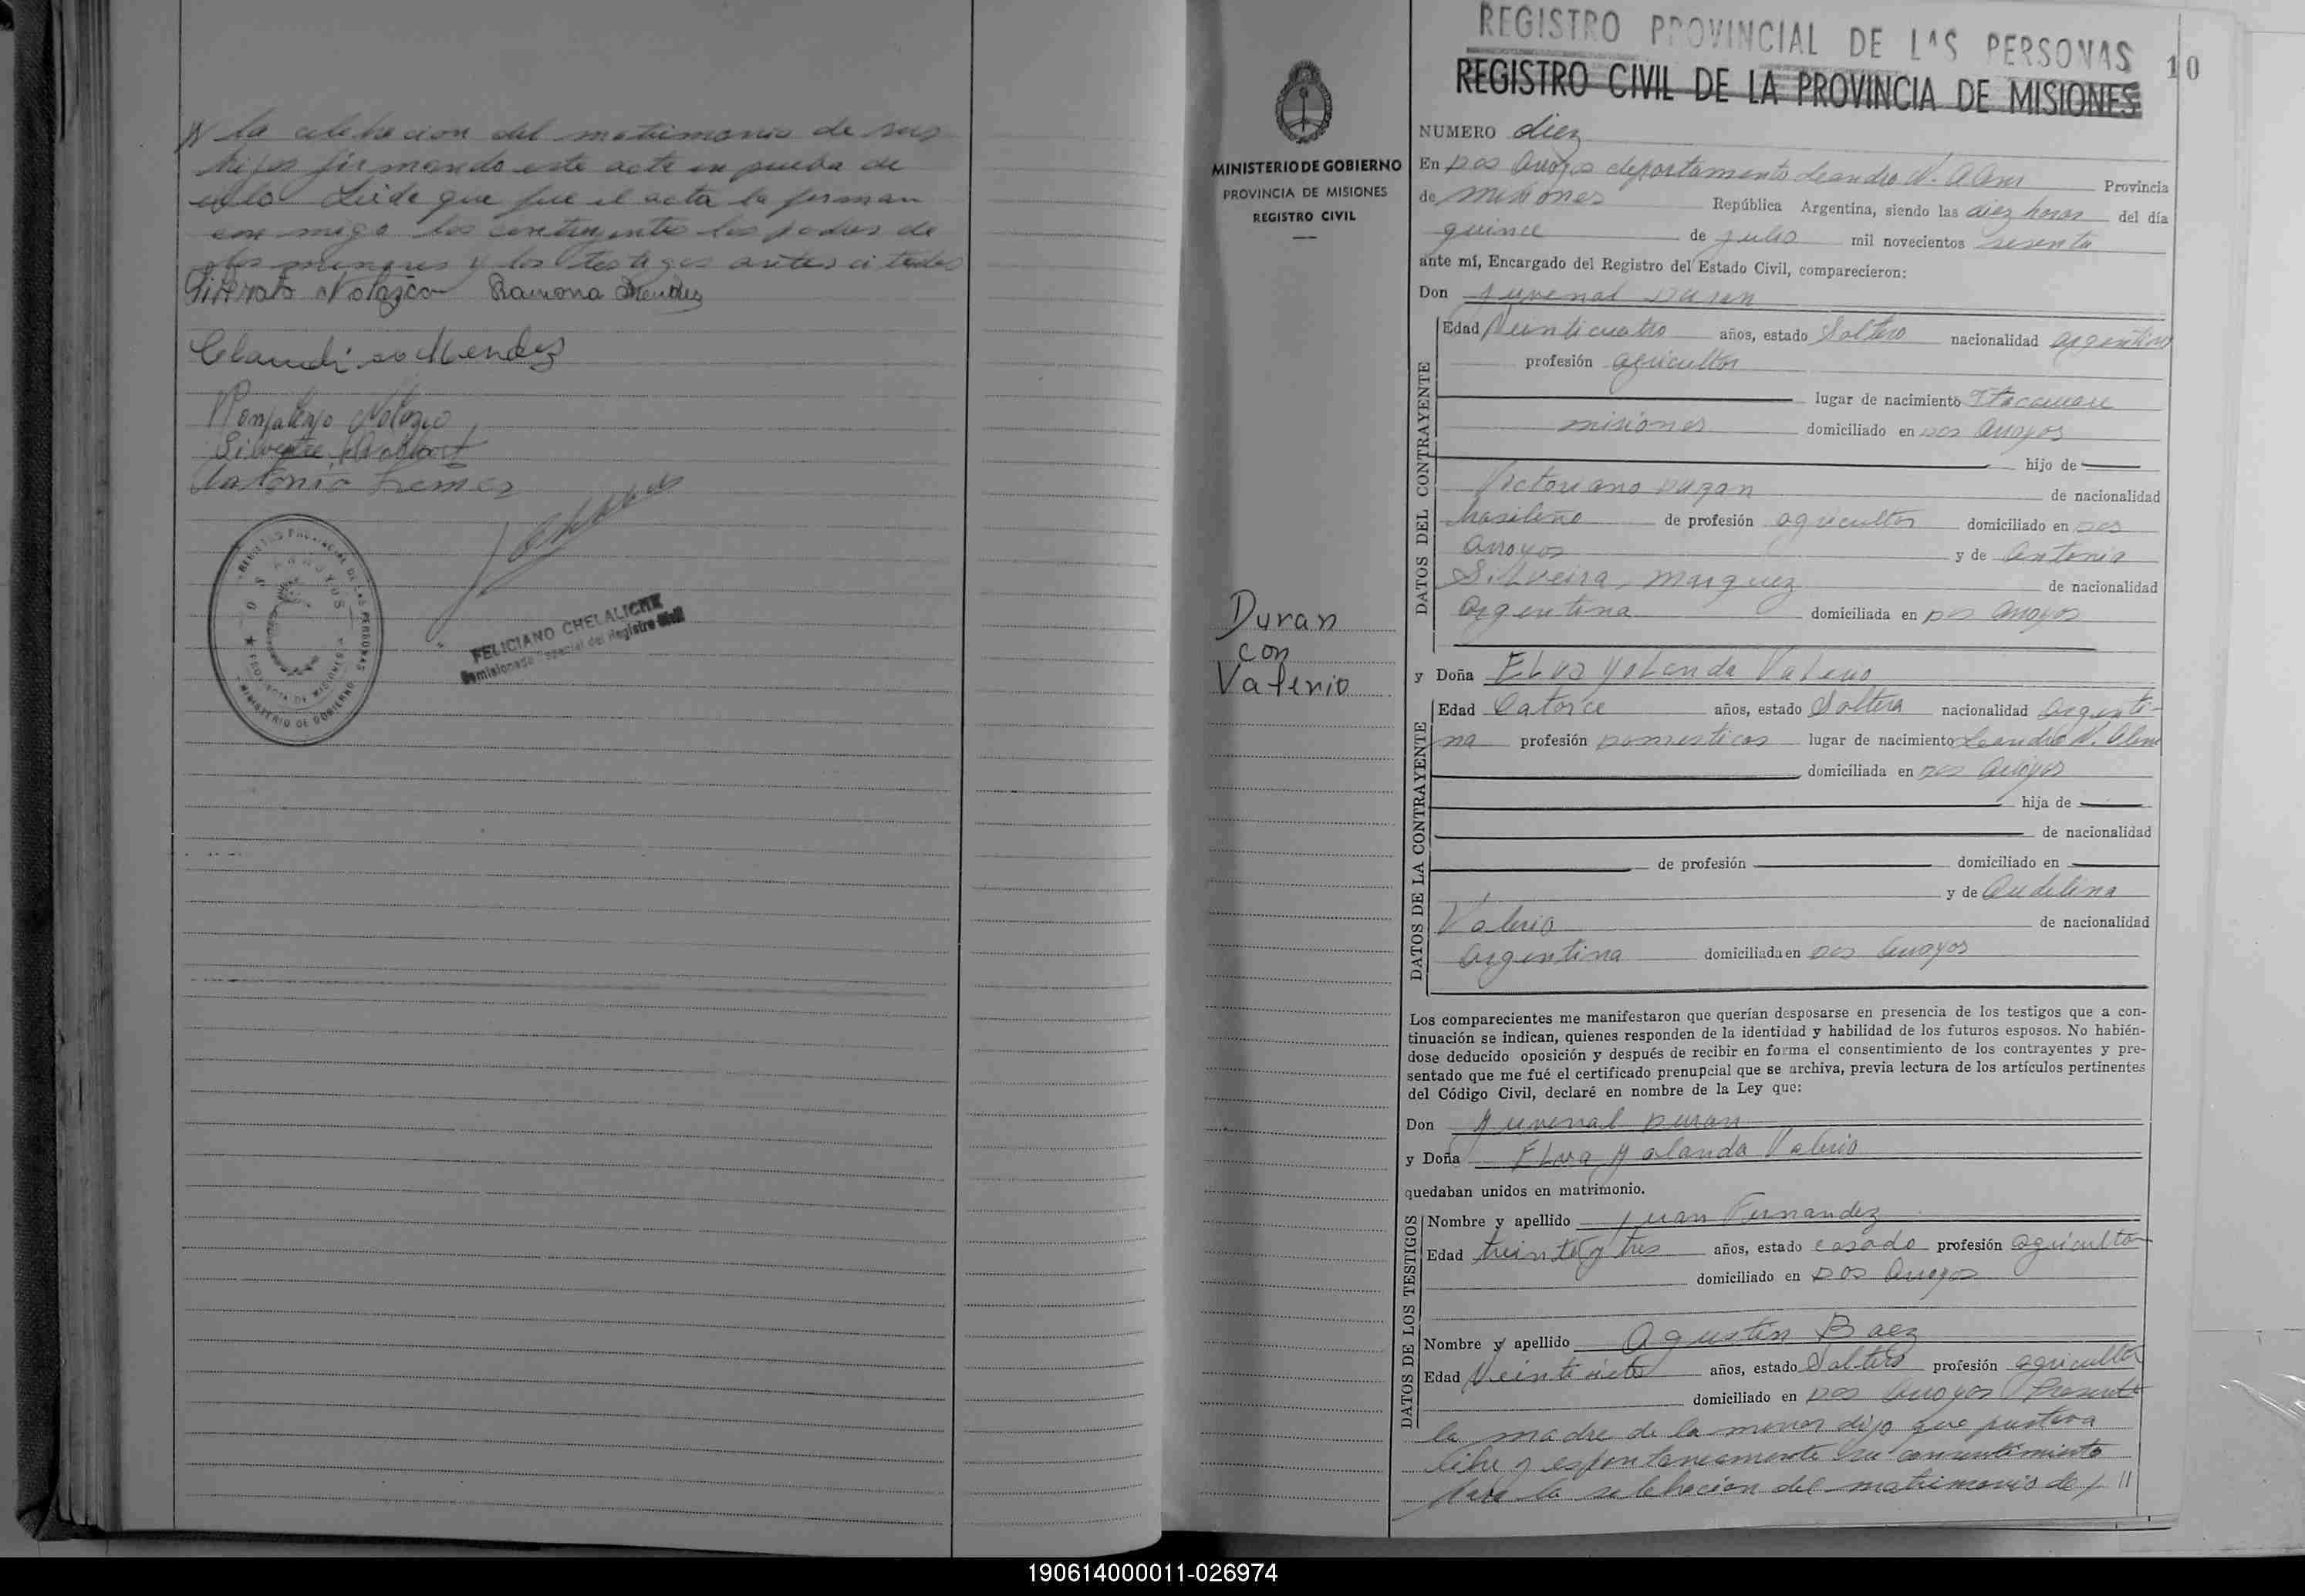 la celebracion del matrimonio de sus
hijos firmando este acta en prueba de
ello Leida que fue el acta la firman
con migo los contrayentes los padres de
los menores y los testigos antes citados
Notazco Ramona Mendez
Claudi so Mendez
Notazio
Silvestre
Antonio
REGISTRO PROVINCIAL DE LAS PERSONAS
DOS ARROYOS
PROVINCIA DE MISIONES
MINISTERIO DE GOBIERNO
FELICIANO CHELALICHE
Comisionado Especial del Registro Civil
MINISTERIO DE GOBIERNO
PROVINCIA DE MISIONES
REGISTRO CIVIL
Duran
con
Valerio
REGISTRO PROVINCIAL DE LAS PERSONAS 10
REGISTRO CIVIL DE LA PROVINCIA DE MISIONES
NUMERO diez
En Dos Arroyos departamento Leandro N. Alem Provincia
de misiones República Argentina, siendo las diez horas del día
quince de julio mil novecientos sesenta
ante mí, Encargado del Registro del Estado Civil, comparecieron:
Don Juvenal Duran
DATOS DEL CONTRAYENTE
Edad Veinticuatro años, estado Soltero nacionalidad argentino
profesión agricultor
lugar de nacimiento Itacuare
misiones domiciliado en Dos Arroyos
hijo de
Victoriano Duran de nacionalidad
brasileño de profesión agricultor domiciliado en Dos
Arroyos y de Antonia
Silveira, marquez de nacionalidad
argentina domiciliada en Dos Arroyos
y Doña Elva Yolanda Valerio
DATOS DE LA CONTRAYENTE
Edad Catorce años, estado Soltera nacionalidad Argenti-
na profesión Domesticos lugar de nacimiento Leandro N. Alem
domiciliada en Dos Arroyos
hija de
de nacionalidad
de profesión domiciliado en
y de Audelina
Valerio de nacionalidad
Argentina domiciliada en Dos Arroyos
Los comparecientes me manifestaron que querían desposarse en presencia de los testigos que a con-
tinuación se indican, quienes responden de la identidad y habilidad de los futuros esposos. No habién-
dose deducido oposición y después de recibir en forma el consentimiento de los contrayentes y pre-
sentado que me fué el certificado prenupcial que se archiva, previa lectura de los artículos pertinentes
del Código Civil, declaré en nombre de la Ley que:
Don Juvenal Duran
y Doña Elva Yolanda Valerio
quedaban unidos en matrimonio.
DATOS DE LOS TESTIGOS
Nombre y apellido Juan Fernandez
Edad treinta y tres años, estado casado profesión agricultor
domiciliado en Dos Arroyos
Nombre y apellido Agustin Baez
Edad años, estado Soltero profesión agricultor
domiciliado en Dos Arroyos Presente
la madre de la menor dijo que prestava
libre y espontaneamente su consentimiento
para la selebracion del matrimonio de
190614000011-026974